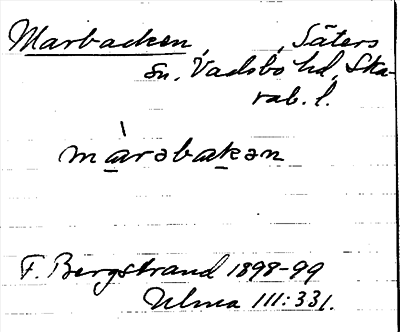 Marbacken, , Säters
sn, Vadsbo hd, Ska-
rab. l.
màrəbakən
F. Bergstrand 1898-99
Ulma 111:331.